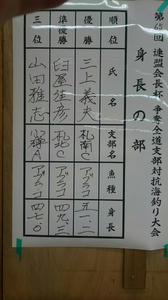 第65回 連盟会長杯 争奪全道支部対抗海釣り大会
身長の部
順位 氏名 支部名 魚種 身長
優勝 三上義夫 札南C アブラコ 五一、二
準優勝 臼屋佳彦 札北C アブラコ 四九、三
三位 山田雅志 小樽A アブラコ 四七、〇